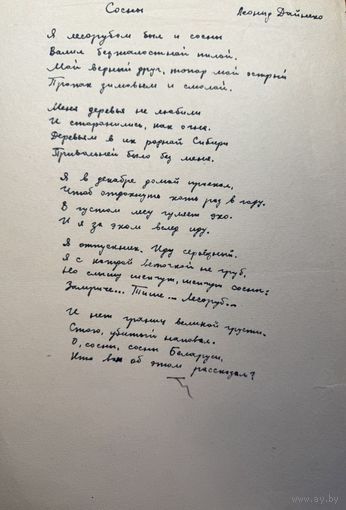 Сосны Леонид Дайнеко
Я лесорубом был и сосны
Валил безжалостной пилой.
Мой верный друг, топор мой острый
Пропах зимовьем и смолой.
Меня деревья не любили
И сторонились, как огня.
Деревьям в их родной Сибири
Привольней было без меня.
Я в декабре домой приехал,
Чтоб отдохнуть хоть раз в году.
В густом лесу гуляет эхо.
И я за эхом вслед иду.
Я отпускник. Иду серьёзный.
Я с каждой веточкой не груб.
Но слышу шепчут, шепчут сосны:
Замрите... Тише... Лесоруб...
И нет границ великой грусти.
Стою, убитый наповал.
О, сосны, сосны Беларуси,
Кто вам об этом рассказал?
www.ay.by